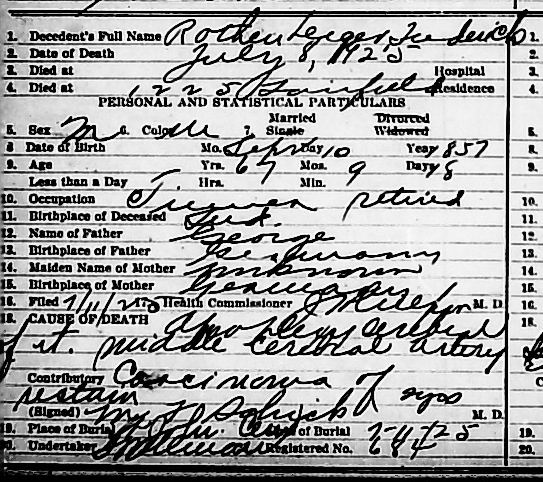 1. Decedent's Full Name Rothenberger, Frederick
2. Date of Death July 8, 1925
3. Died at Hospital
4. Died at 1225 Residence
PERSONAL AND STATISTICAL PARTICULARS
Married Divorced
5. Sex M 6. Color W 7. Single Widowed
8 Date of Birth Mo. Sept Day 10 Year 1857
9. Age Yrs. 67 Mos. 9 Days
Less than a Day Hrs. Min.
10. Occupation retired
11. Birthplace of Deceased Ind.
12. Name of Father George
13. Birthplace of Father Germany
14. Maiden Name of Mother unknown
15. Birthplace of Mother Germany
16. Filed 7/11/25 Health Commissioner M. D.
18. CAUSE OF DEATH Apoplexy cerebral
of rt. middle cerebral artery
Contributory Carcinoma of
(Signed) M. D.
19. Place of Burial Date of Burial 7-11-25
20. Undertaker Registered No. 684
1.
2.
3.
4.
5.
8.
9.
10.
11.
12.
13.
14.
15.
16.
18.
19.
20.